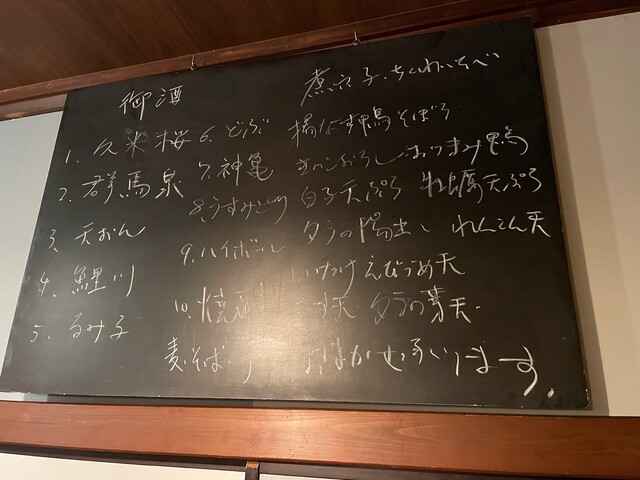 御酒
1. 久米桜
2. 群馬泉
3. 天おん
4. 鯉川
5. るみ子
6. どぶ
7. 神亀
8. うすにごり
9. ハイボール
10. 焼酎
麦、そば、
煮穴子、ちくわいそべ
揚なす鴨そぼろ
きのこおろし おつまみ鴨
白子天ぷら 牡蠣天ぷら
タラの れんこん天
天 タラの芽天
おまかせ承ります。